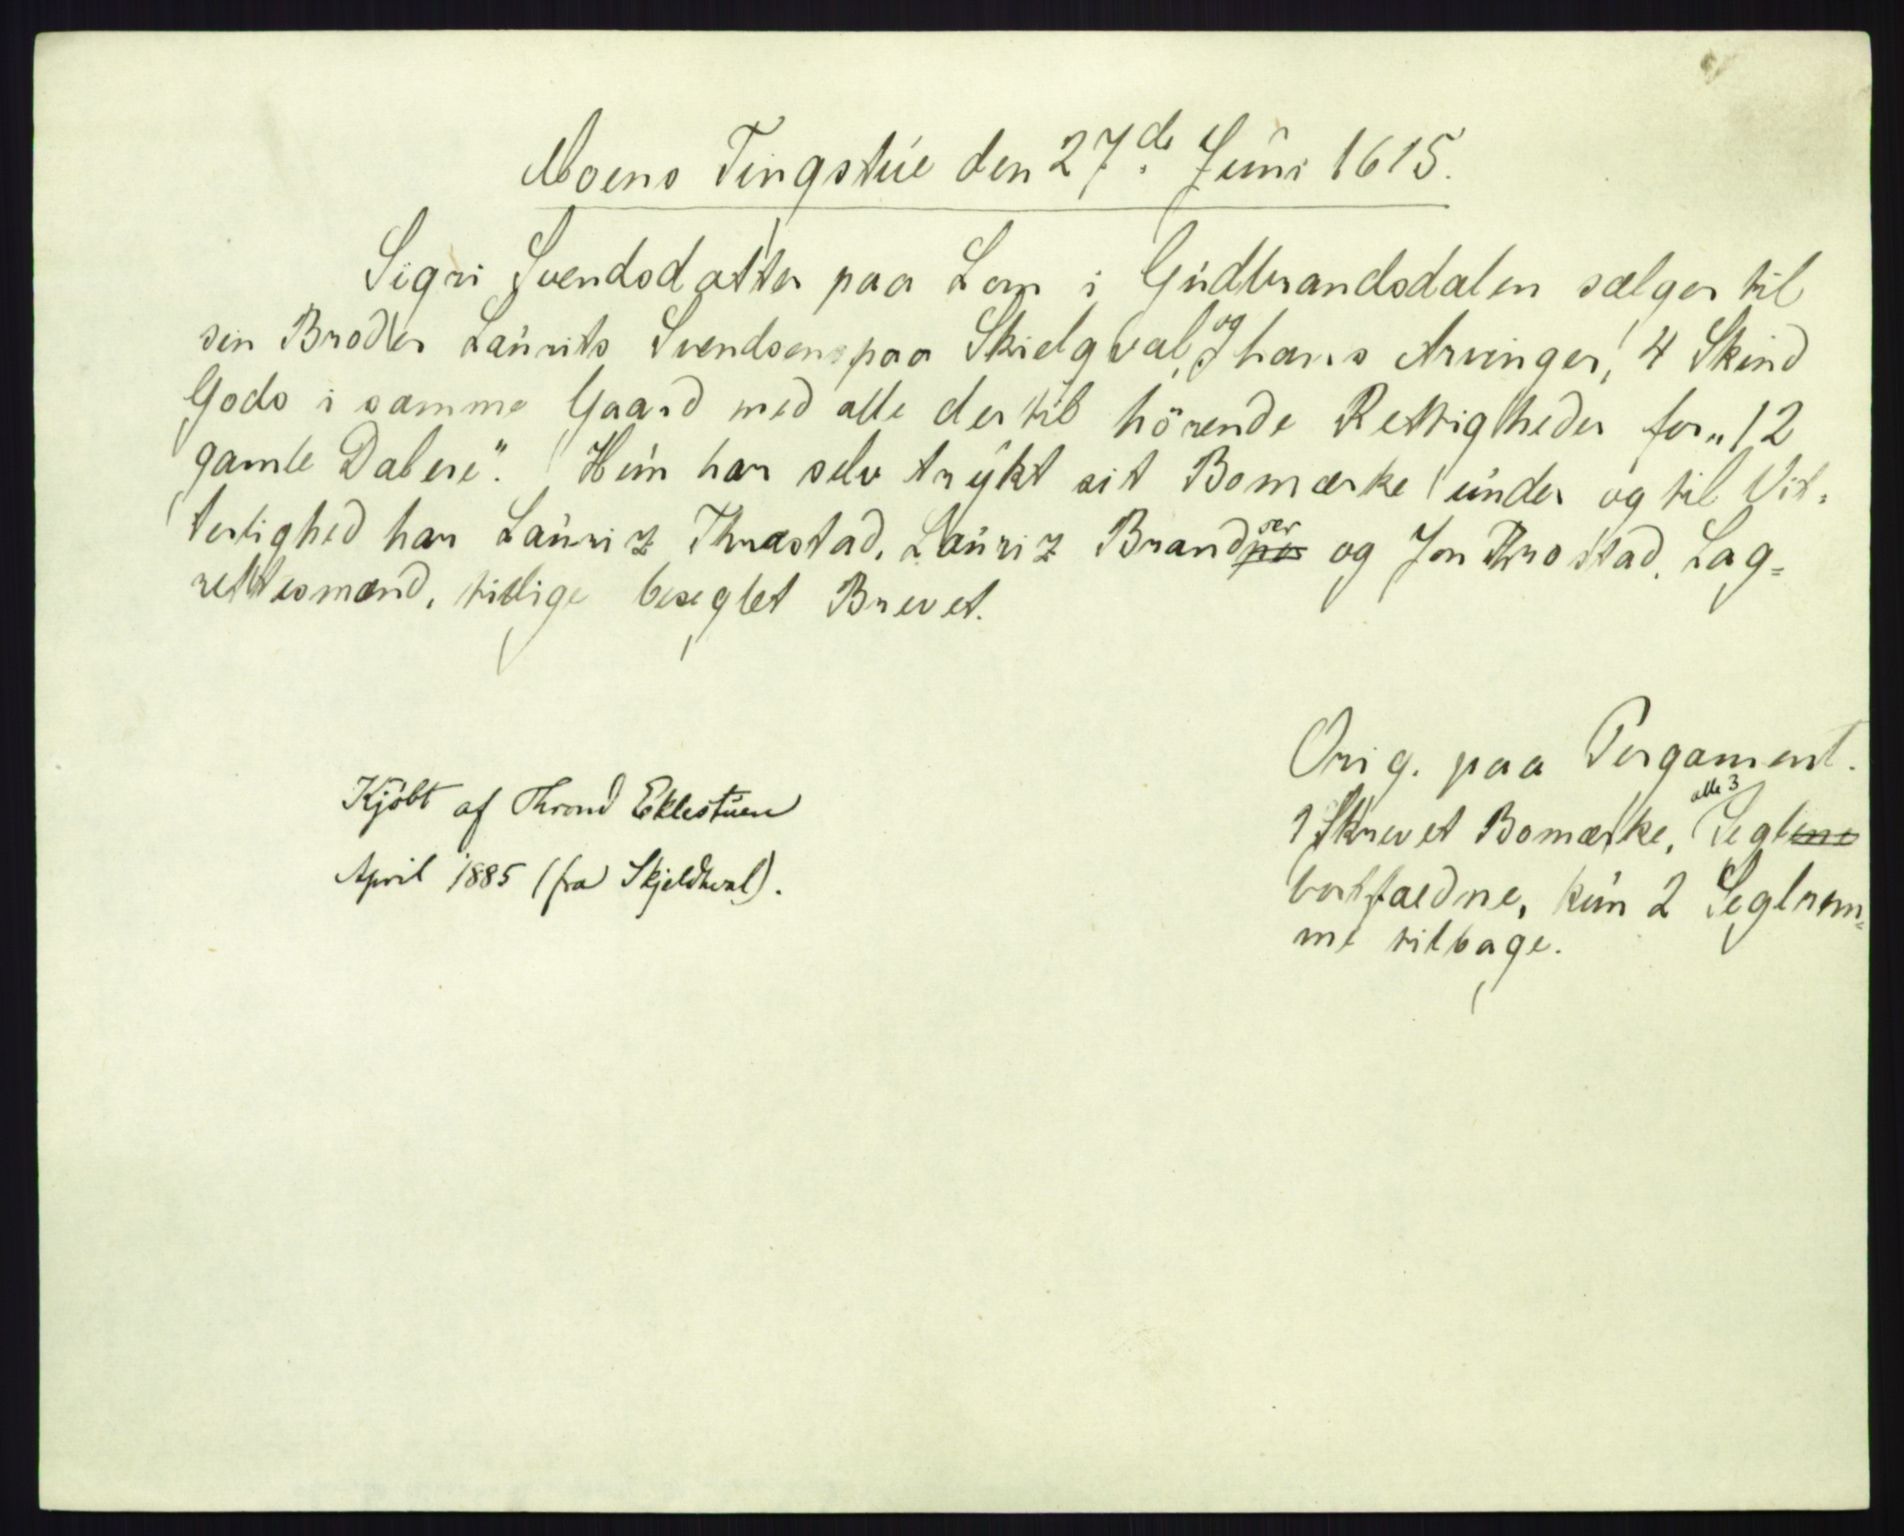 Moens Tingstue den 27de Juni 1615.
Sigri Svendsdatter paa Lom i Gudbrandsdalen sælger til
sin Broder Laurits Svendsen paa Skielqval, og hans Arvinger, 4 Skind
Gods i samme Gaard med alle dertil hörende Rettigheder for „12
gamle Dalere”. Hun har selv trykt sit Bomærke under og til Vit=
terlighed har Lauriz Thrastad, Lauriz Brandser og Jon Throstad, Lag=
rettesmænd, tillige beseglet Brevet.
Kjöbt af Thrond Eklestuen
April 1885 (fra Skjeldkval).
Orig. paa Pergament.
1 Skrevet Bomærke, alle 3 Segl
bortfaldne, kun 2 Seglrem=
me tilbage.